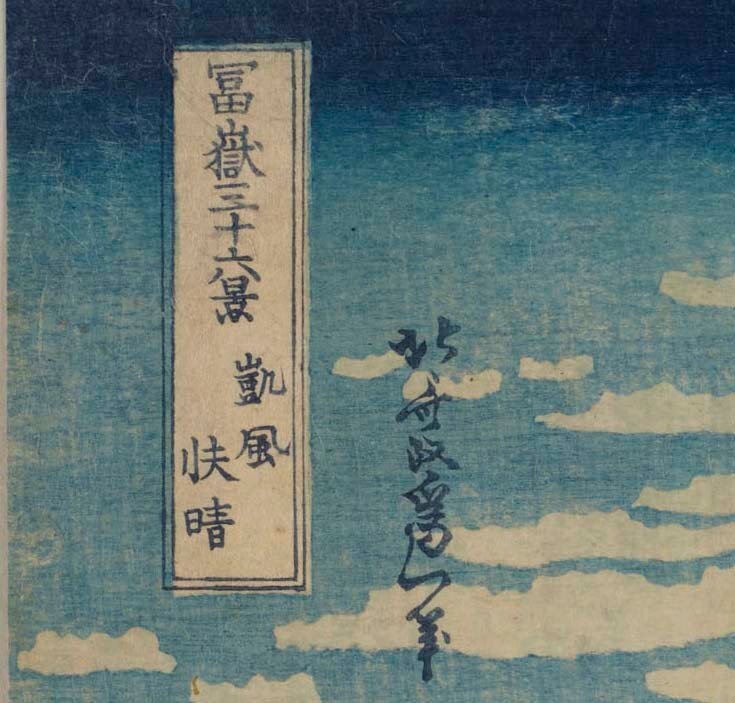 冨嶽三十六景
凱風
快晴
北斎改爲一筆